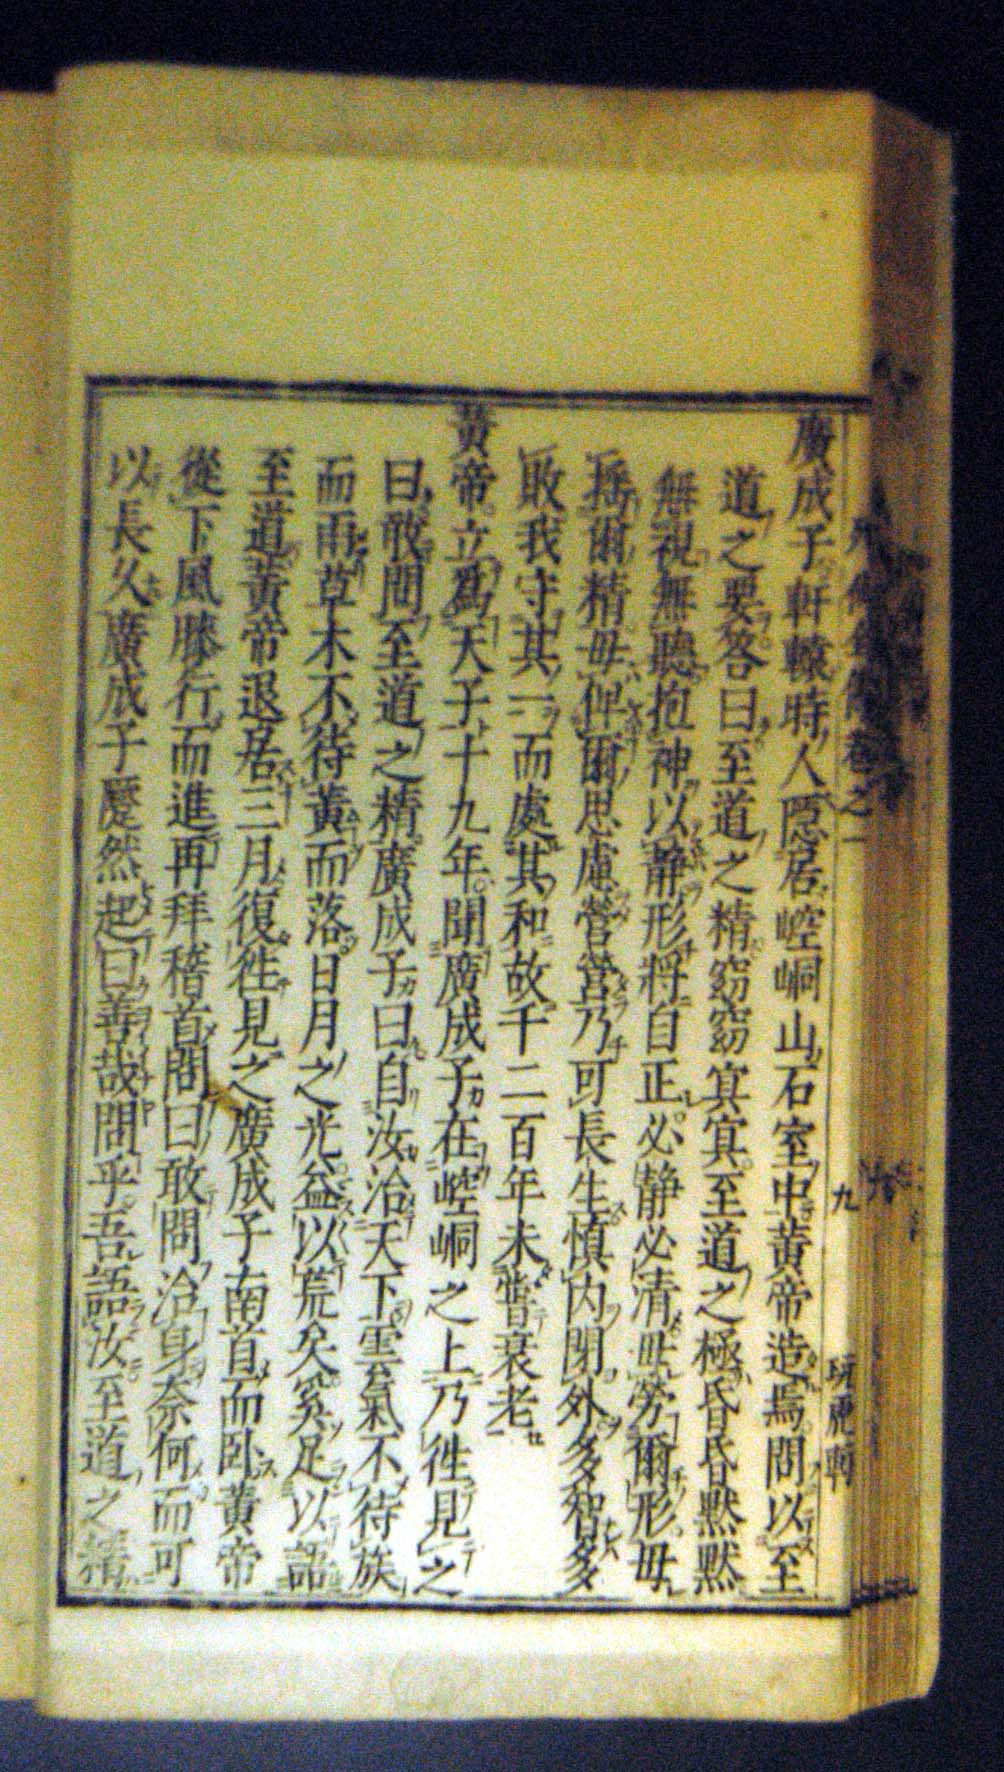 廣成子軒轅時人隱居崆峒山石室中黃帝造焉問以至
道之要答曰至道之精窈窈冥冥至道之極昏昏默默
無視無聽抱神以静形將自正必静必清毋勞爾形毋
搖爾精毋俾爾思慮營營乃可長生慎内閉外多智多
敗我守其一而處其和故千二百年未嘗衰老
黃帝立爲天子十九年聞廣成子在崆峒之上乃徃見之
曰敢問至道之精廣成子曰自汝治天下雲氣不待族
而雨草木不待黃而落日月之光益以荒矣奚足以語
至道黃帝退居三月復徃見之廣成子南首而卧黃帝
從下風膝行而進再拜稽首問曰敢問治身奈何而可
以長久廣成子蹷然起曰善哉問乎吾語汝至道之精
卷之一
九
玩虎軒